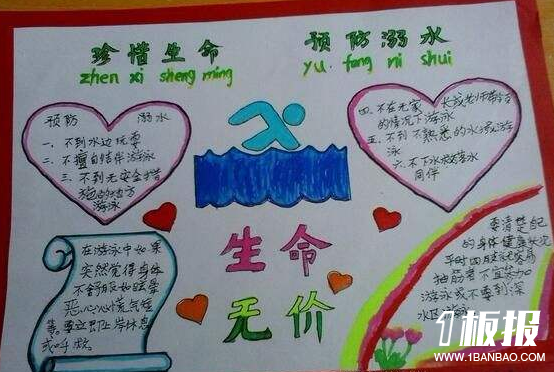 珍惜生命 预防溺水
zhen xi sheng ming yu fang ni shui
预防 溺水
一、不到水边玩耍
二、不擅自结伴游泳
三、不到无安全措
施的地方
游泳
四、不在无家长或老师带
的情况下游泳
五、不到不熟悉的水域游
泳
六、不下水救落水
同伴
生命
无价
在游泳中如果
突然觉得身体
不舒服如眩晕
恶心心慌气短
等要立即上岸休息
或呼救
要清楚自己
的身体健康状况
平时四肢就容易
抽筋者不宜参加
游泳或不要到深
水区游泳
板报
WWW.1BANBAO.COM